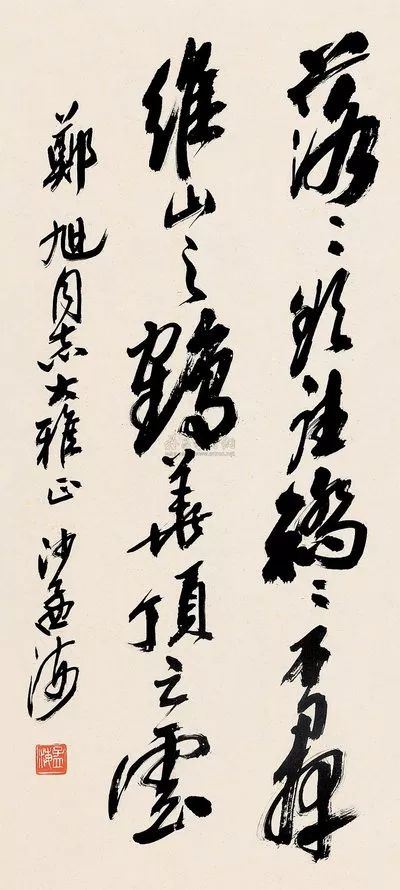 落〻欲往矯〻不羣
緱山之鶴華頂之雲
鄭旭同志大雅正 沙孟海
孟海